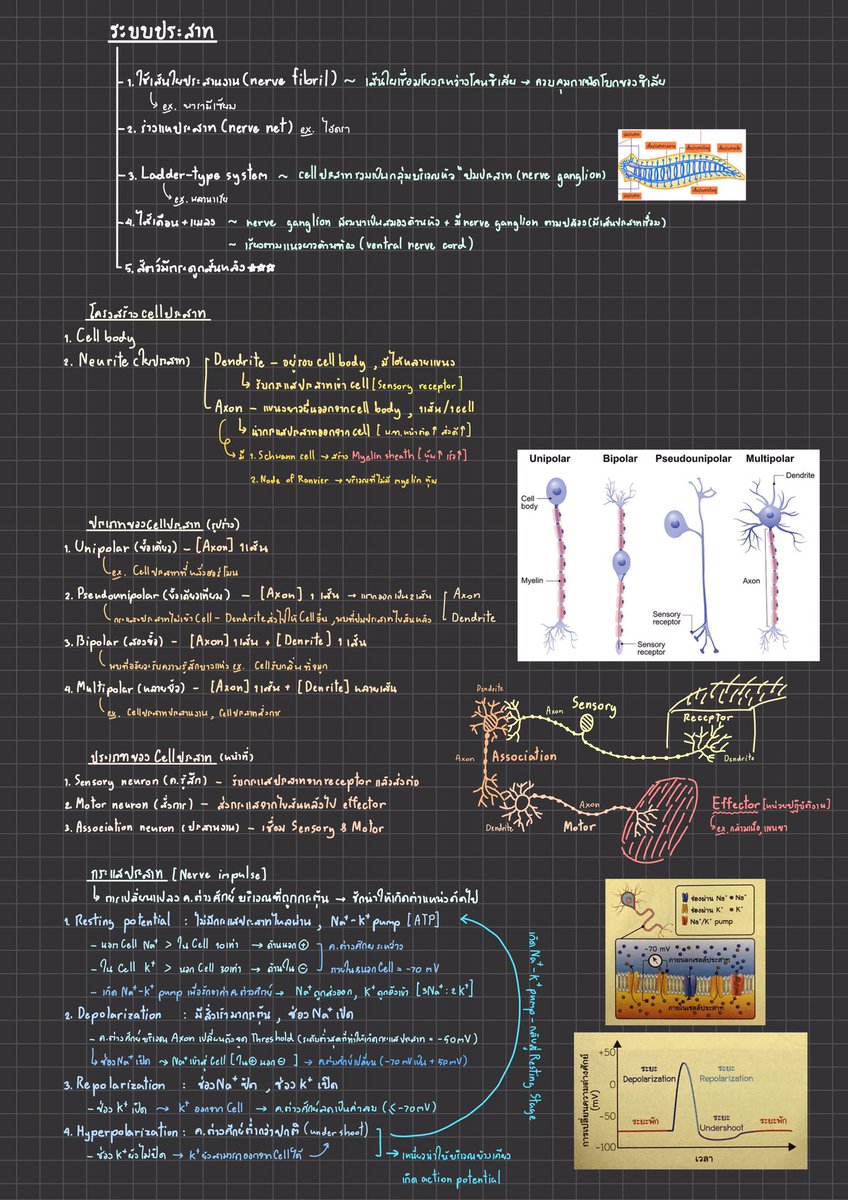 ระบบประสาท
1. ใช้เส้นใยประสานงาน (nerve fibril) ~ เส้นใยเชื่อมโยงระหว่างโคนซิเลีย → ควบคุมการพัดโบกของซิเลีย
ex. พารามีเซียม
2. ร่างแหประสาท (nerve net) ex. ไฮดรา
3. Ladder-type system ~ cell ประสาทรวมเป็นกลุ่มบริเวณหัว "ปมประสาท (nerve ganglion)
ex. พลานาเรีย
4. ไส้เดือน + แมลง ~ nerve ganglion พัฒนาเป็นสมองด้านหัว + มี nerve ganglion ตามปล้อง (มีเส้นประสาทเชื่อม)
~ เรียงตามแนวยาวด้านท้อง (ventral nerve cord)
5. สัตว์มีกระดูกสันหลัง ★★★
โครงสร้าง cell ประสาท
1. Cell body
2. Neurite (ใยประสาท)
Dendrite - อยู่รอบ cell body , มีได้หลายแขนง
↳ รับกระแสประสาทเข้า cell [Sensory receptor]
Axon - แขนงยาวยื่นออกจาก cell body , 1 เส้น/1 cell
↳ นำกระแสประสาทออกจาก cell [พ.ท. หน้าตัด ↑ ส่งดี ↑]
มี 1. Schwann cell → สร้าง Myelin sheath [หุ้ม ↑ เร็ว ↑]
2. Node of Ranvier → บริเวณที่ไม่มี myelin หุ้ม
Unipolar Bipolar Pseudounipolar Multipolar
Dendrite
Cell body
Myelin
Axon
Sensory receptor
Sensory receptor
ประเภทของ Cell ประสาท (รูปร่าง)
1. Unipolar (ขั้วเดียว) - [Axon] 1 เส้น
ex. Cell ประสาทที่หลั่งฮอร์โมน
2. Pseudounipolar (ขั้วเดียวเทียม) - [Axon] 1 เส้น → แตกออกเป็น 2 เส้น Axon
Dendrite
กระแสประสาทไม่เข้า Cell - Dendrite ส่งไปให้ Cell อื่น , พบที่ปมประสาทไขสันหลัง
3. Bipolar (สองขั้ว) - [Axon] 1 เส้น + [Denrite] 1 เส้น
พบที่อวัยวะรับความรู้สึกบางแห่ง ex. Cell รับกลิ่นที่จมูก
4. Multipolar (หลายขั้ว) - [Axon] 1 เส้น + [Denrite] หลายเส้น
ex. Cell ประสาทประสานงาน , Cell ประสาทสั่งการ
Dendrite
Axon
Sensory
Receptor
Dendrite
Axon
Association
Dendrite
Axon
Motor
Effector [หน่วยปฏิบัติงาน]
ex. กล้ามเนื้อ,
ประเภทของ Cell ประสาท (หน้าที่)
1. Sensory neuron (ค.รู้สึก) - รับกระแสประสาทจาก receptor แล้วส่งต่อ
2. Motor neuron (สั่งการ) - ส่งกระแสจากไขสันหลังไป effector
3. Association neuron (ประสานงาน) - เชื่อม Sensory & Motor
กระแสประสาท [Nerve impulse]
↳ การเปลี่ยนแปลง ค.ต่างศักย์ บริเวณที่ถูกกระตุ้น → ชักนำให้เกิดตำแหน่งถัดไป
1. Resting potential : ไม่มีกระแสประสาทไหลผ่าน , Na⁺-K⁺ pump [ATP]
- นอก Cell Na⁺ > ใน Cell 10 เท่า → ด้านนอก ⊕ ค.ต่างศักย์ระหว่าง
- ใน Cell K⁺ > นอก Cell 30 เท่า → ด้านใน ⊖ ภายใน&นอก Cell = -70 mV
- เกิด Na⁺-K⁺ pump เพื่อรักษาค่า ค.ต่างศักย์ → Na⁺ ถูกส่งออก, K⁺ ถูกดึงเข้า [3Na⁺ : 2K⁺]
2. Depolarization : มีสิ่งเร้ามากระตุ้น , ช่อง Na⁺ เปิด
- ค.ต่างศักย์บริเวณ Axon เปลี่ยนถึงจุด Threshold (ระดับต่ำสุดที่ทำให้เกิดกระแสประสาท = -50 mV)
↳ ช่อง Na⁺ เปิด → Na⁺ เข้าสู่ Cell [ใน ⊕ นอก ⊖] → ค.ต่างศักย์เปลี่ยน (-70 mV เป็น +50 mV)
3. Repolarization : ช่อง Na⁺ ปิด , ช่อง K⁺ เปิด
- ช่อง K⁺ เปิด → K⁺ ออกจาก Cell → ค.ต่างศักย์ลดเป็นค่าลบ (≤ -70 mV)
4. Hyperpolarization : ค.ต่างศักย์ต่ำกว่าปกติ (under shoot)
- ช่อง K⁺ ยังไม่ปิด → K⁺ ยังสามารถออกจาก Cell ได้
↳ เหนี่ยวนำให้บริเวณข้างเคียง
เกิด action potential
เกิด Na⁺-K⁺ pump - กลับสู่ Resting Stage
ช่องผ่าน Na⁺ Na⁺
ช่องผ่าน K⁺ K⁺
Na⁺/K⁺ pump
-70 mV
ภายนอกเซลล์ประสาท
ภายในเซลล์ประสาท
การเปลี่ยนความต่างศักย์ (mV)
+50
0
-50
-100
ระยะ Depolarization
ระยะ Repolarization
ระยะ Undershoot
ระยะพัก
ระยะพัก
เวลา